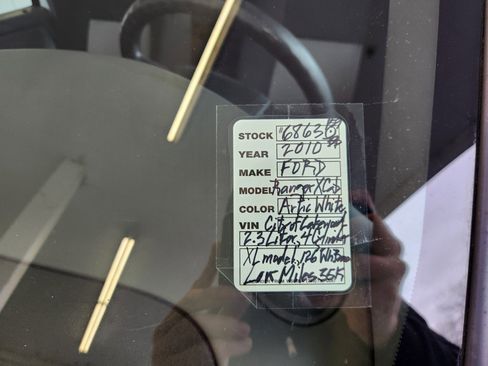 STOCK #6863
YEAR 2010
MAKE FORD
MODEL Ranger XCab
COLOR Artic White
VIN City of Lakewood
2.3 Liter, 4 Cylinder
XL model, 126 Wh Base
Low Miles 35K